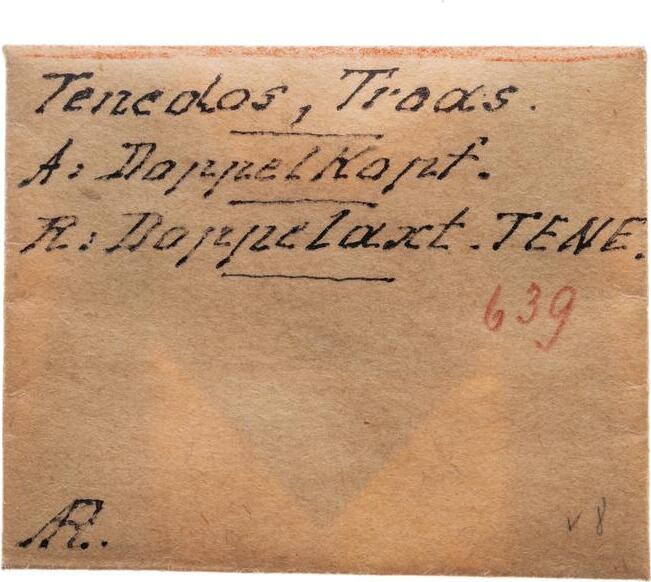 Tenedos, Troas.
A: Doppelkopf.
R: Doppelaxt. TENE.
639
AR.
v 8